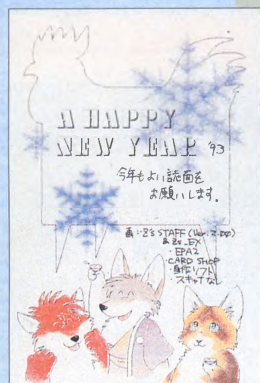 A HAPPY
NEW YEAR '93
今年もよい誌面を
お願いします。
画:Z's STAFF (Ver. 2.00)
& Zs_EX
・EPA2
・CARD SHOP
・自作ソフト
・スキャナなし